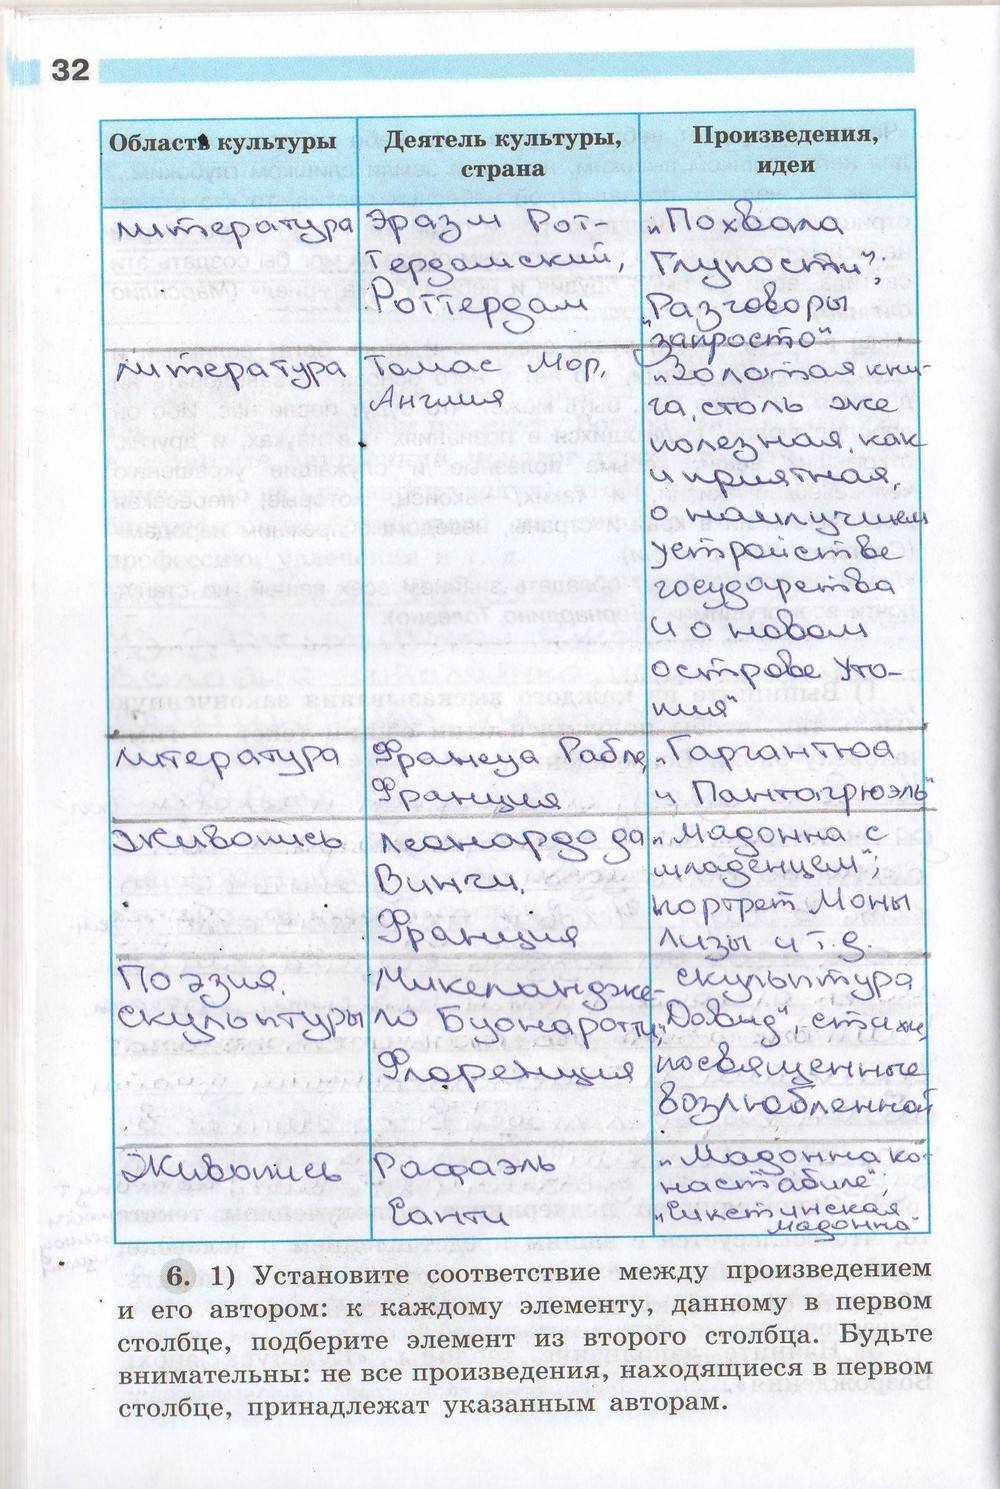 32
Область культуры
Деятель культуры,
страна
Произведения,
идеи
литература
Эразм Рот-
тердамский,
Роттердам
„Похвала
Глупости";
„Разговоры
запросто"
литература
Томас Мор,
Англия
„Золотая кни-
га, столь же
полезная, как
и приятная,
о наилучшем
устройстве
государства
и о новом
острове Уто-
пия"
литература
Франсуа Рабле,
Франция
„Гаргантюа
и Пантагрюэль"
Живопись
Леонардо да
Винчи,
Франция
„Мадонна с
младенцем";
портрет Моны
Лизы и т.д.
Поэзия,
скульптуры
Микеландже-
ло Буонаротти,
Флоренция
скульптура
„Давид", стихи,
посвященные
возлюбленной
Живопись
Рафаэль
Санти
„Мадонна ко-
настабиле";
„Сикстинская
мадонна"
6. 1) Установите соответствие между произведением
и его автором: к каждому элементу, данному в первом
столбце, подберите элемент из второго столбца. Будьте
внимательны: не все произведения, находящиеся в первом
столбце, принадлежат указанным авторам.